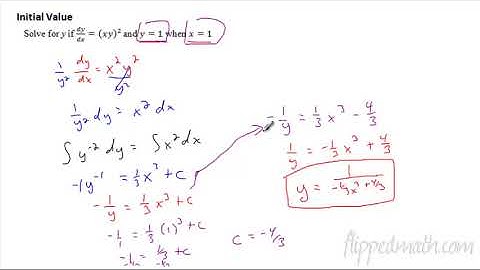 Initial Value
Solve for y if dy/dx = (xy)² and y = 1 when x = 1
1/y² dy/dx = x² y²/y²
1/y² dy = x² dx
∫ y⁻² dy = ∫ x² dx
-1y⁻¹ = 1/3 x³ + C
-1/y = 1/3 x³ + C
-1/1 = 1/3 (1)³ + C
-1 = 1/3 + C
-1/3 -1/3
C = -4/3
-1/y = 1/3 x³ - 4/3
1/y = -1/3 x³ + 4/3
y = 1/(-1/3 x³ + 4/3)
flippedmath.com